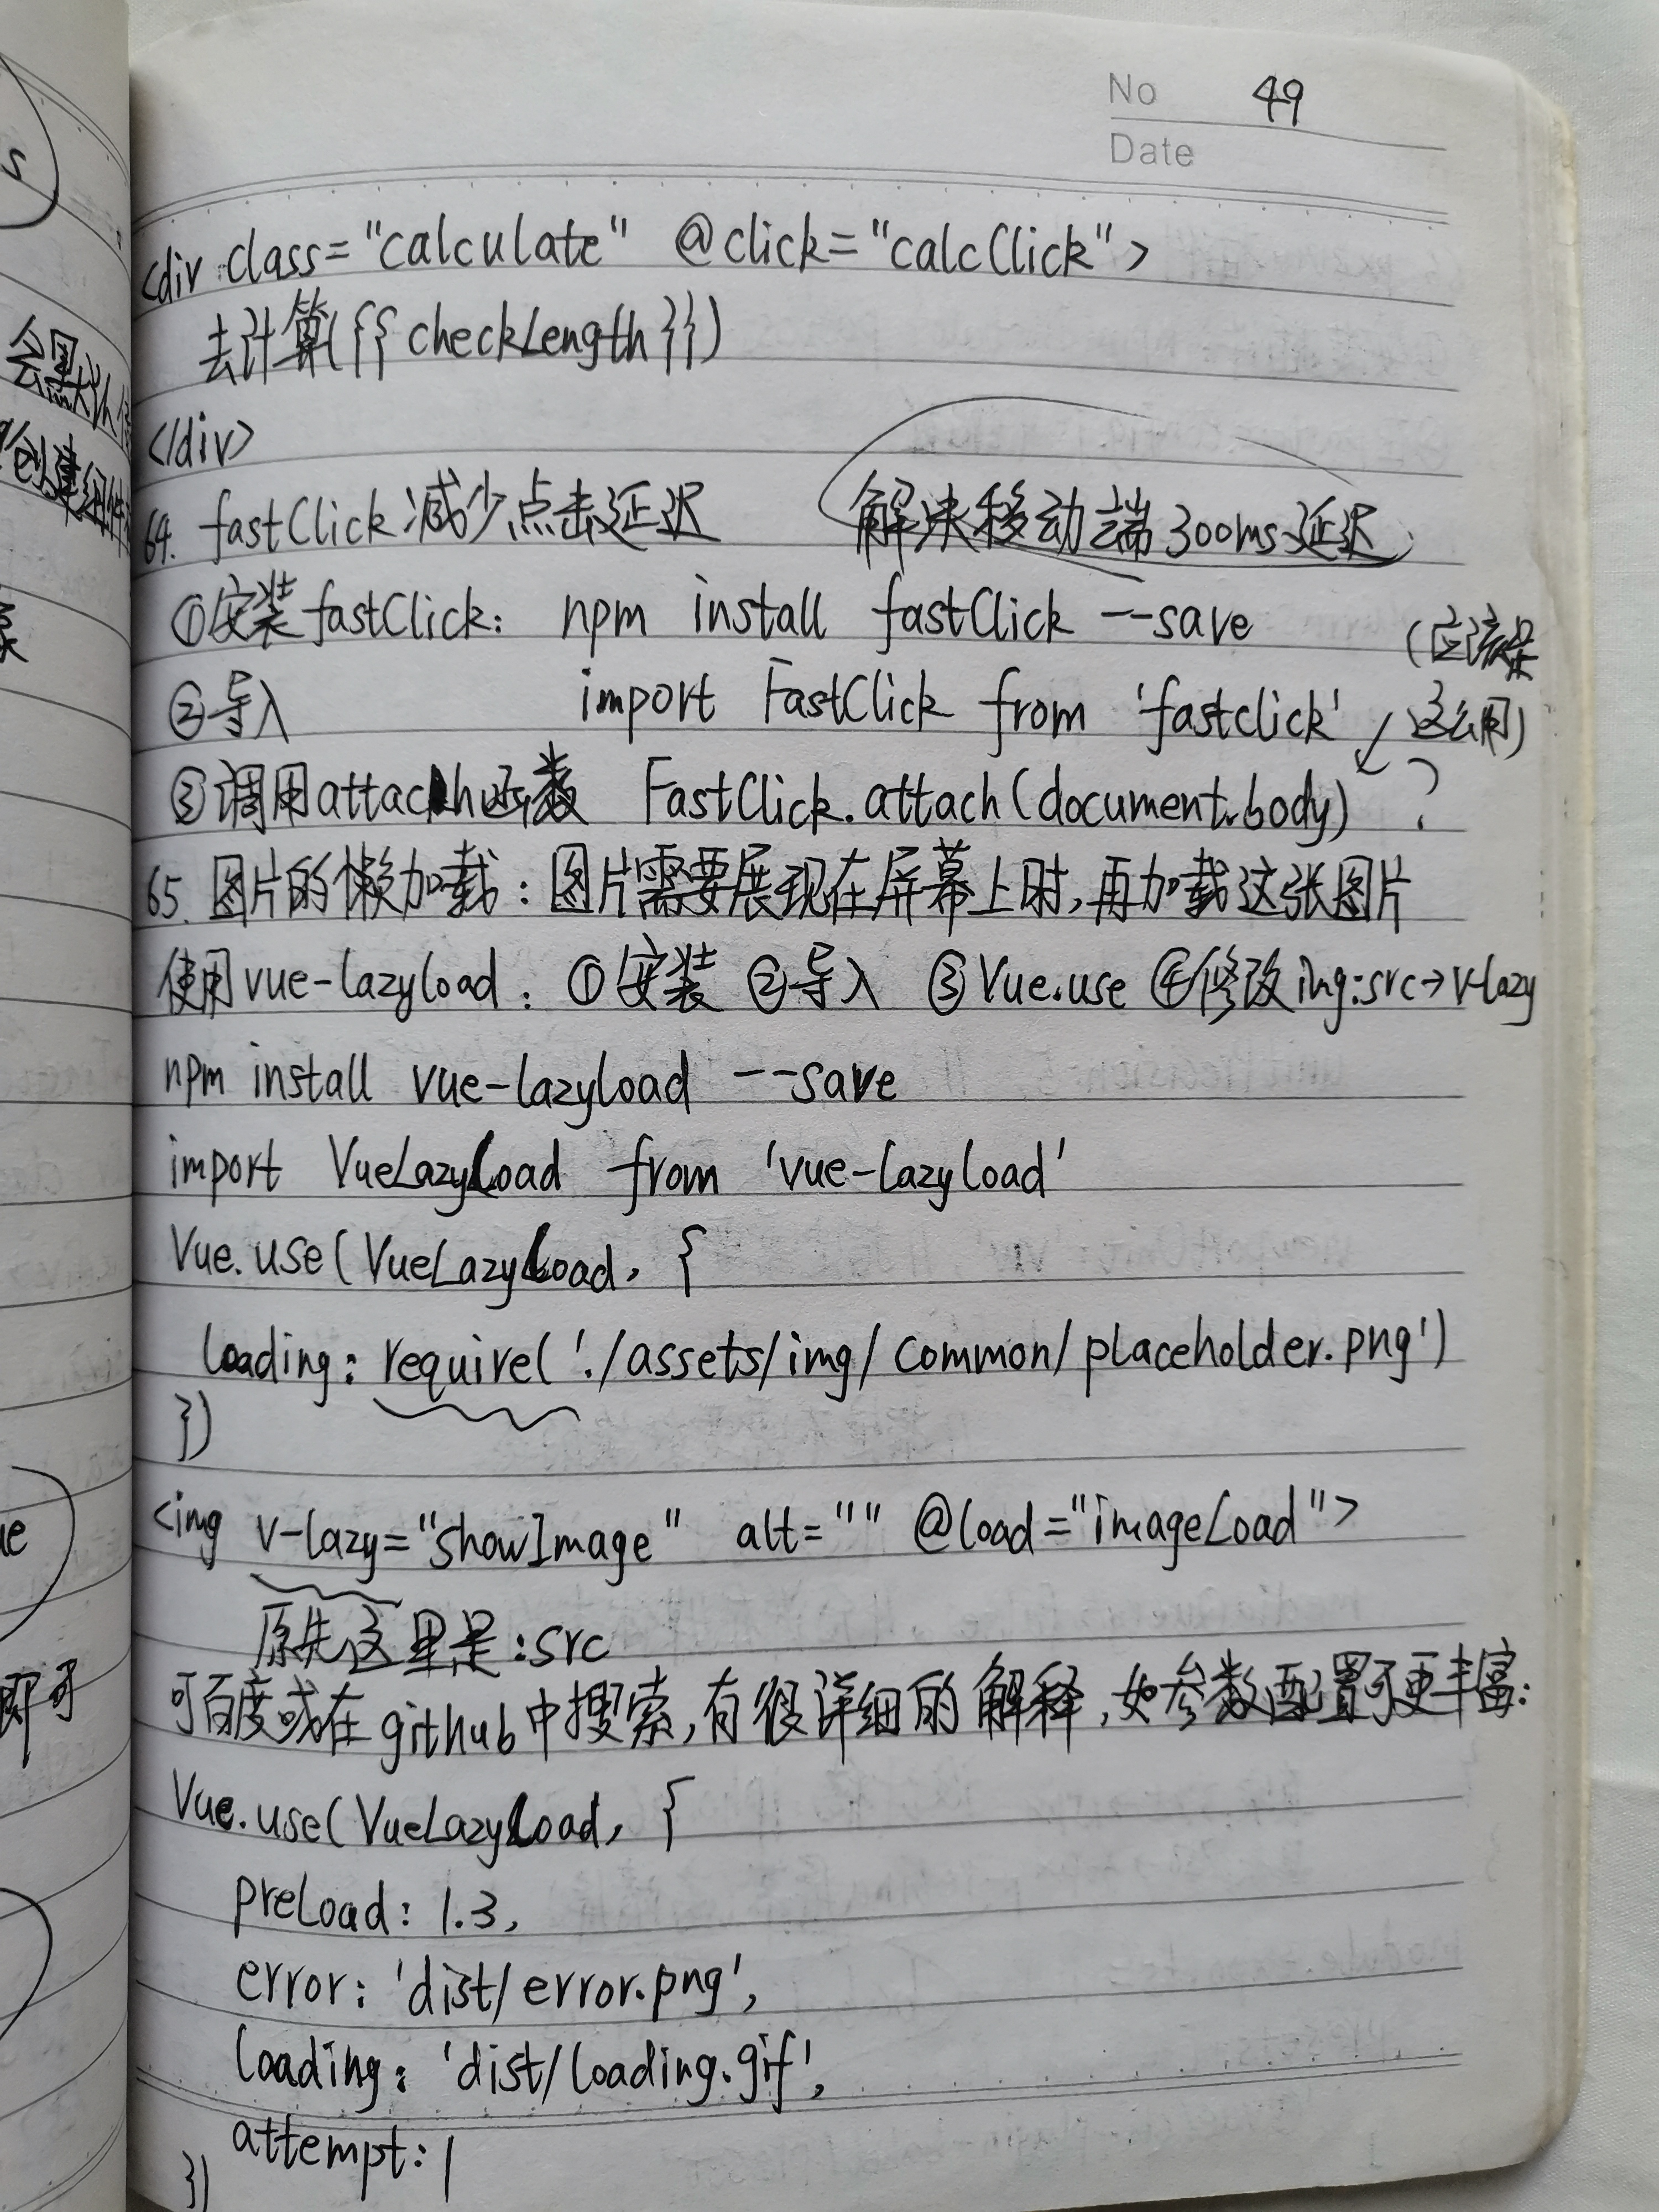 No 49
Date
<div class="calculate" @click="calcClick">
去计算({{checkLength}})
</div>
64. fastClick减少点击延迟 解决移动端300ms延迟
①安装fastClick: npm install fastClick --save (应该是
②导入 import FastClick from 'fastclick' 这么用)
③调用attach函数 FastClick.attach(document.body) ?
65. 图片的懒加载:图片需要展现在屏幕上时,再加载这张图片
使用vue-lazyload: ①安装 ②导入 ③Vue.use ④修改img:src→v-lazy
npm install vue-lazyload --save
import VueLazyLoad from 'vue-lazyload'
Vue.use(VueLazyLoad, {
loading: require('./assets/img/common/placeholder.png')
})
<img v-lazy="showImage" alt="" @load="imageLoad">
原先这里是:src
可百度或在github中搜索,有很详细的解释,如参数配置可更丰富:
Vue.use(VueLazyLoad, {
preLoad: 1.3,
error: 'dist/error.png',
loading: 'dist/loading.gif',
attempt: 1
})
s
会默认
创建组件
象
ue
即可